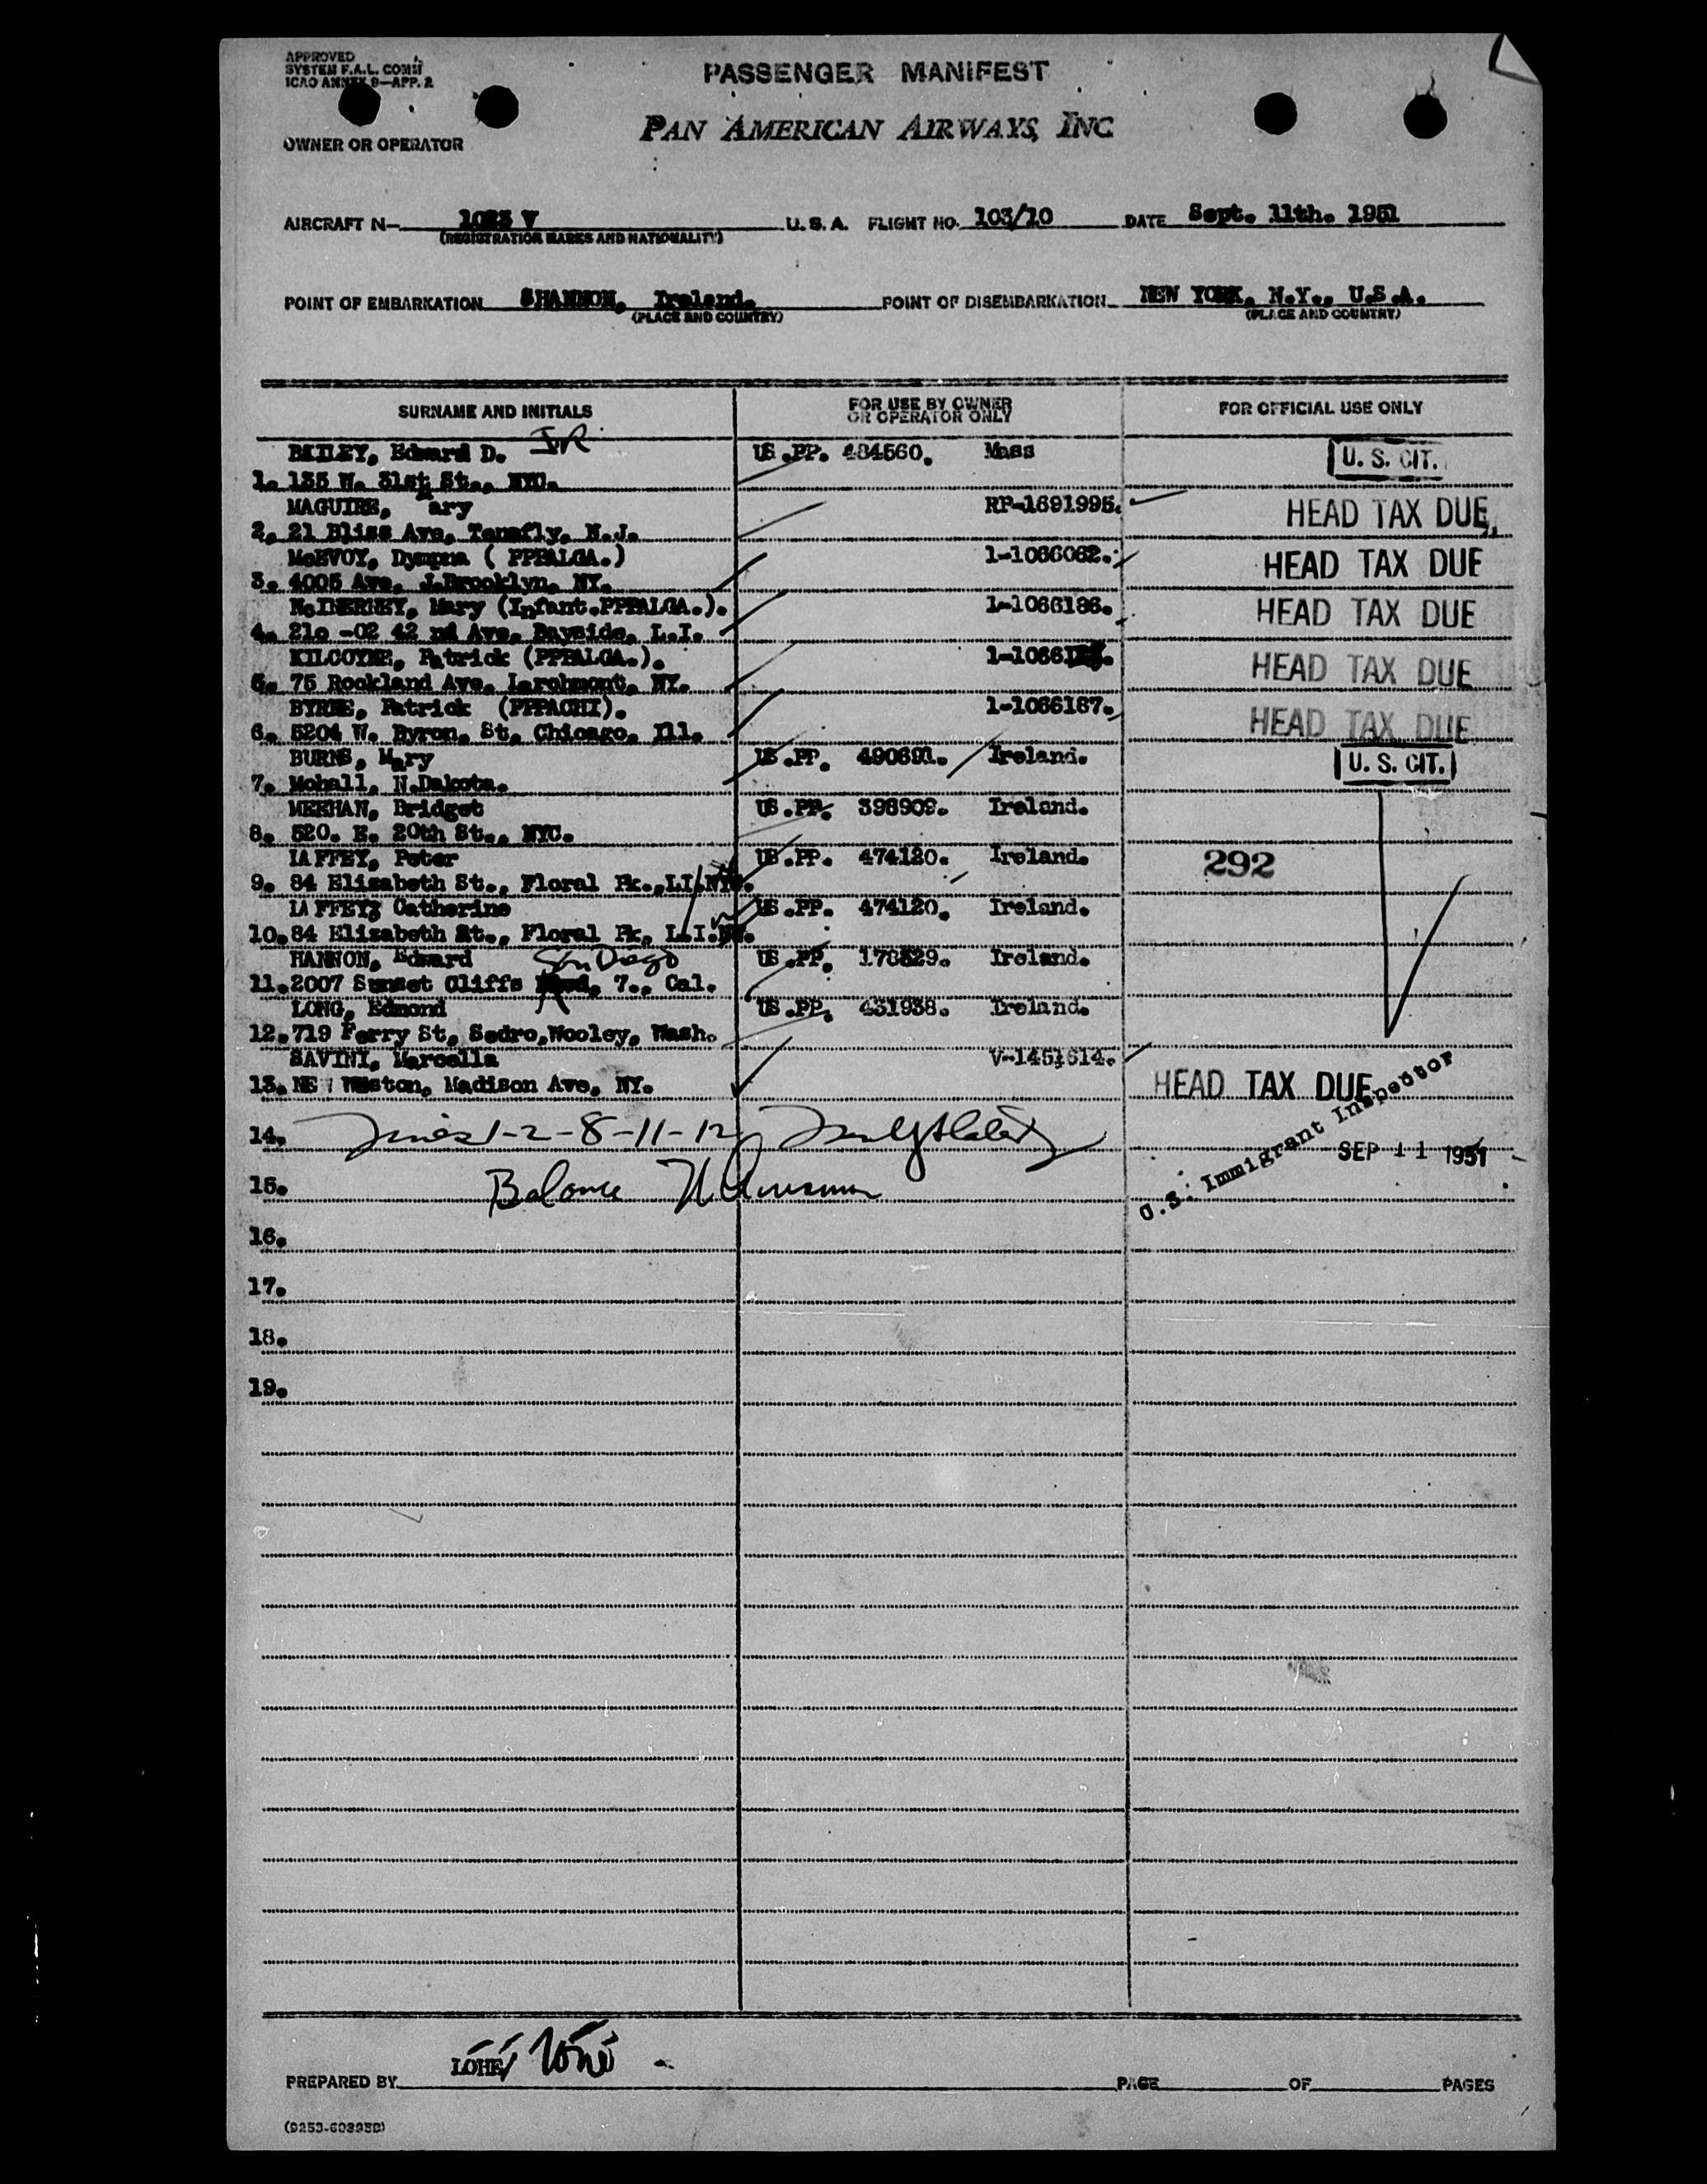 APPROVED
SYSTEM F.A.L. COMM
ICAO ANNEX 9—APP. 2
PASSENGER MANIFEST
PAN AMERICAN AIRWAYS, INC
OWNER OR OPERATOR
AIRCRAFT N— 1023 V U. S. A. FLIGHT NO. 103/10 DATE Sept. 11th. 1951
(REGISTRATION MARKS AND NATIONALITY)
POINT OF EMBARKATION SHANNON, Ireland. POINT OF DISEMBARKATION NEW YORK, N.Y., U.S.A.
(PLACE AND COUNTRY) (PLACE AND COUNTRY)
SURNAME AND INITIALS FOR USE BY OWNER OR OPERATOR ONLY FOR OFFICIAL USE ONLY
BAILEY, Edward D. JR US.PP. 484560. Mass U. S. CIT.
1. 135 W. 31st St., NYC.
MAGUIRE, Mary RP-1691995. HEAD TAX DUE
2. 21 Bliss Ave, Tenafly, N.J.
McEVOY, Dympna ( PPPALGA.) 1-1066062. HEAD TAX DUE
3. 4005 Ave, J.Brooklyn, NY.
McINERNEY, Mary (Infant.PPPALGA.). 1-1066186. HEAD TAX DUE
4. 21o -02 42 nd Ave, Bayside, L.I.
KILCOYNE, Patrick (PPPALGA.). 1-1066 HEAD TAX DUE
5. 75 Rockland Ave, Larchmont, NY.
BYRNE, Patrick (PPPACHI). 1-1066187. HEAD TAX DUE
6. 5204 W. Byron, St, Chicago, Ill.
BURNS, Mary US.PP. 490691. Ireland. U. S. CIT.
7. Mohall, N.Dakota.
MEEHAN, Bridget US.PP. 398909. Ireland.
8. 520. E. 20th St., NYC.
LAFFEY, Peter US.PP. 474120. Ireland. 292
9. 84 Elizabeth St., Floral Pk.,LI.
LAFFEY, Catherine US.PP. 474120. Ireland.
10. 84 Elizabeth St., Floral Pk, L.I.
HANNON, Edward San Diego US.PP. 178529. Ireland.
11. 2007 Sunset Cliffs 7., Cal.
LONG, Edmond US.PP. 431938. Ireland.
12. 719 Ferry St, Sedro,Wooley, Wash.
SAVINI, Marcella V-1451614.
13. NEW Weston, Madison Ave, NY. HEAD TAX DUE
14. Lines 1-2-8-11-12
U.S. Immigrant Inspector
SEP 11 1951
15. Balance
16.
17.
18.
19.
LOHE/
PREPARED BY PAGE OF PAGES